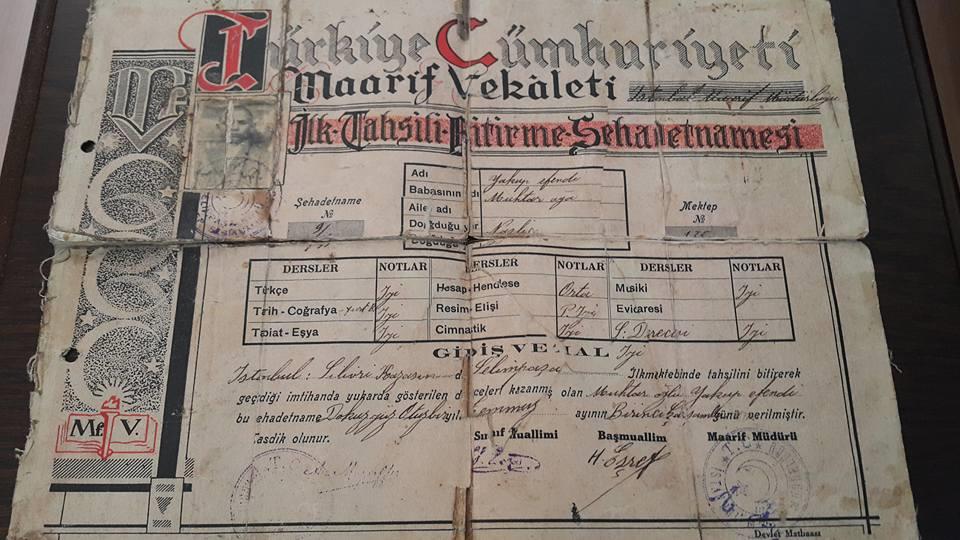 Türkiye Cümhuriyeti
Maarif Vekâleti
İstanbul Maarif Müdürlüğü
İlk-Tahsili-Bitirme-Şehadetnamesi
Mf
Adı Yakup efendi
Babasının adı Muhtar ağa
Aile adı
Doğduğu yer
Doğduğu
Şehadetname
№
Mektep
№
DERSLER NOTLAR DERSLER NOTLAR DERSLER NOTLAR
Türkçe İyi Hesap-Hendese Orta Musiki İyi
Tarih-Coğrafya İyi Resim-Elişi P. İyi Evidaresi
Tabiat-Eşya İyi Cimnastik İyi İyi
GİDİŞ VE HAL İyi
İstanbul: Silivri Kazasının Selimpaşa İlkmektebinde tahsilini bitirerek
geçdiği imtihanda yukarda gösterilen dereceleri kazanmış olan Muhtar oğlu Yakup efendi
bu şehadetname Dokuzyüz Otuzbir yılı Temmuz ayının Birinci günü verilmiştir.
Tasdik olunur.
Sınıf Muallimi Başmuallim Maarif Müdürü
Mf. V.
H. Eşref
T.C.
Devlet Matbaası